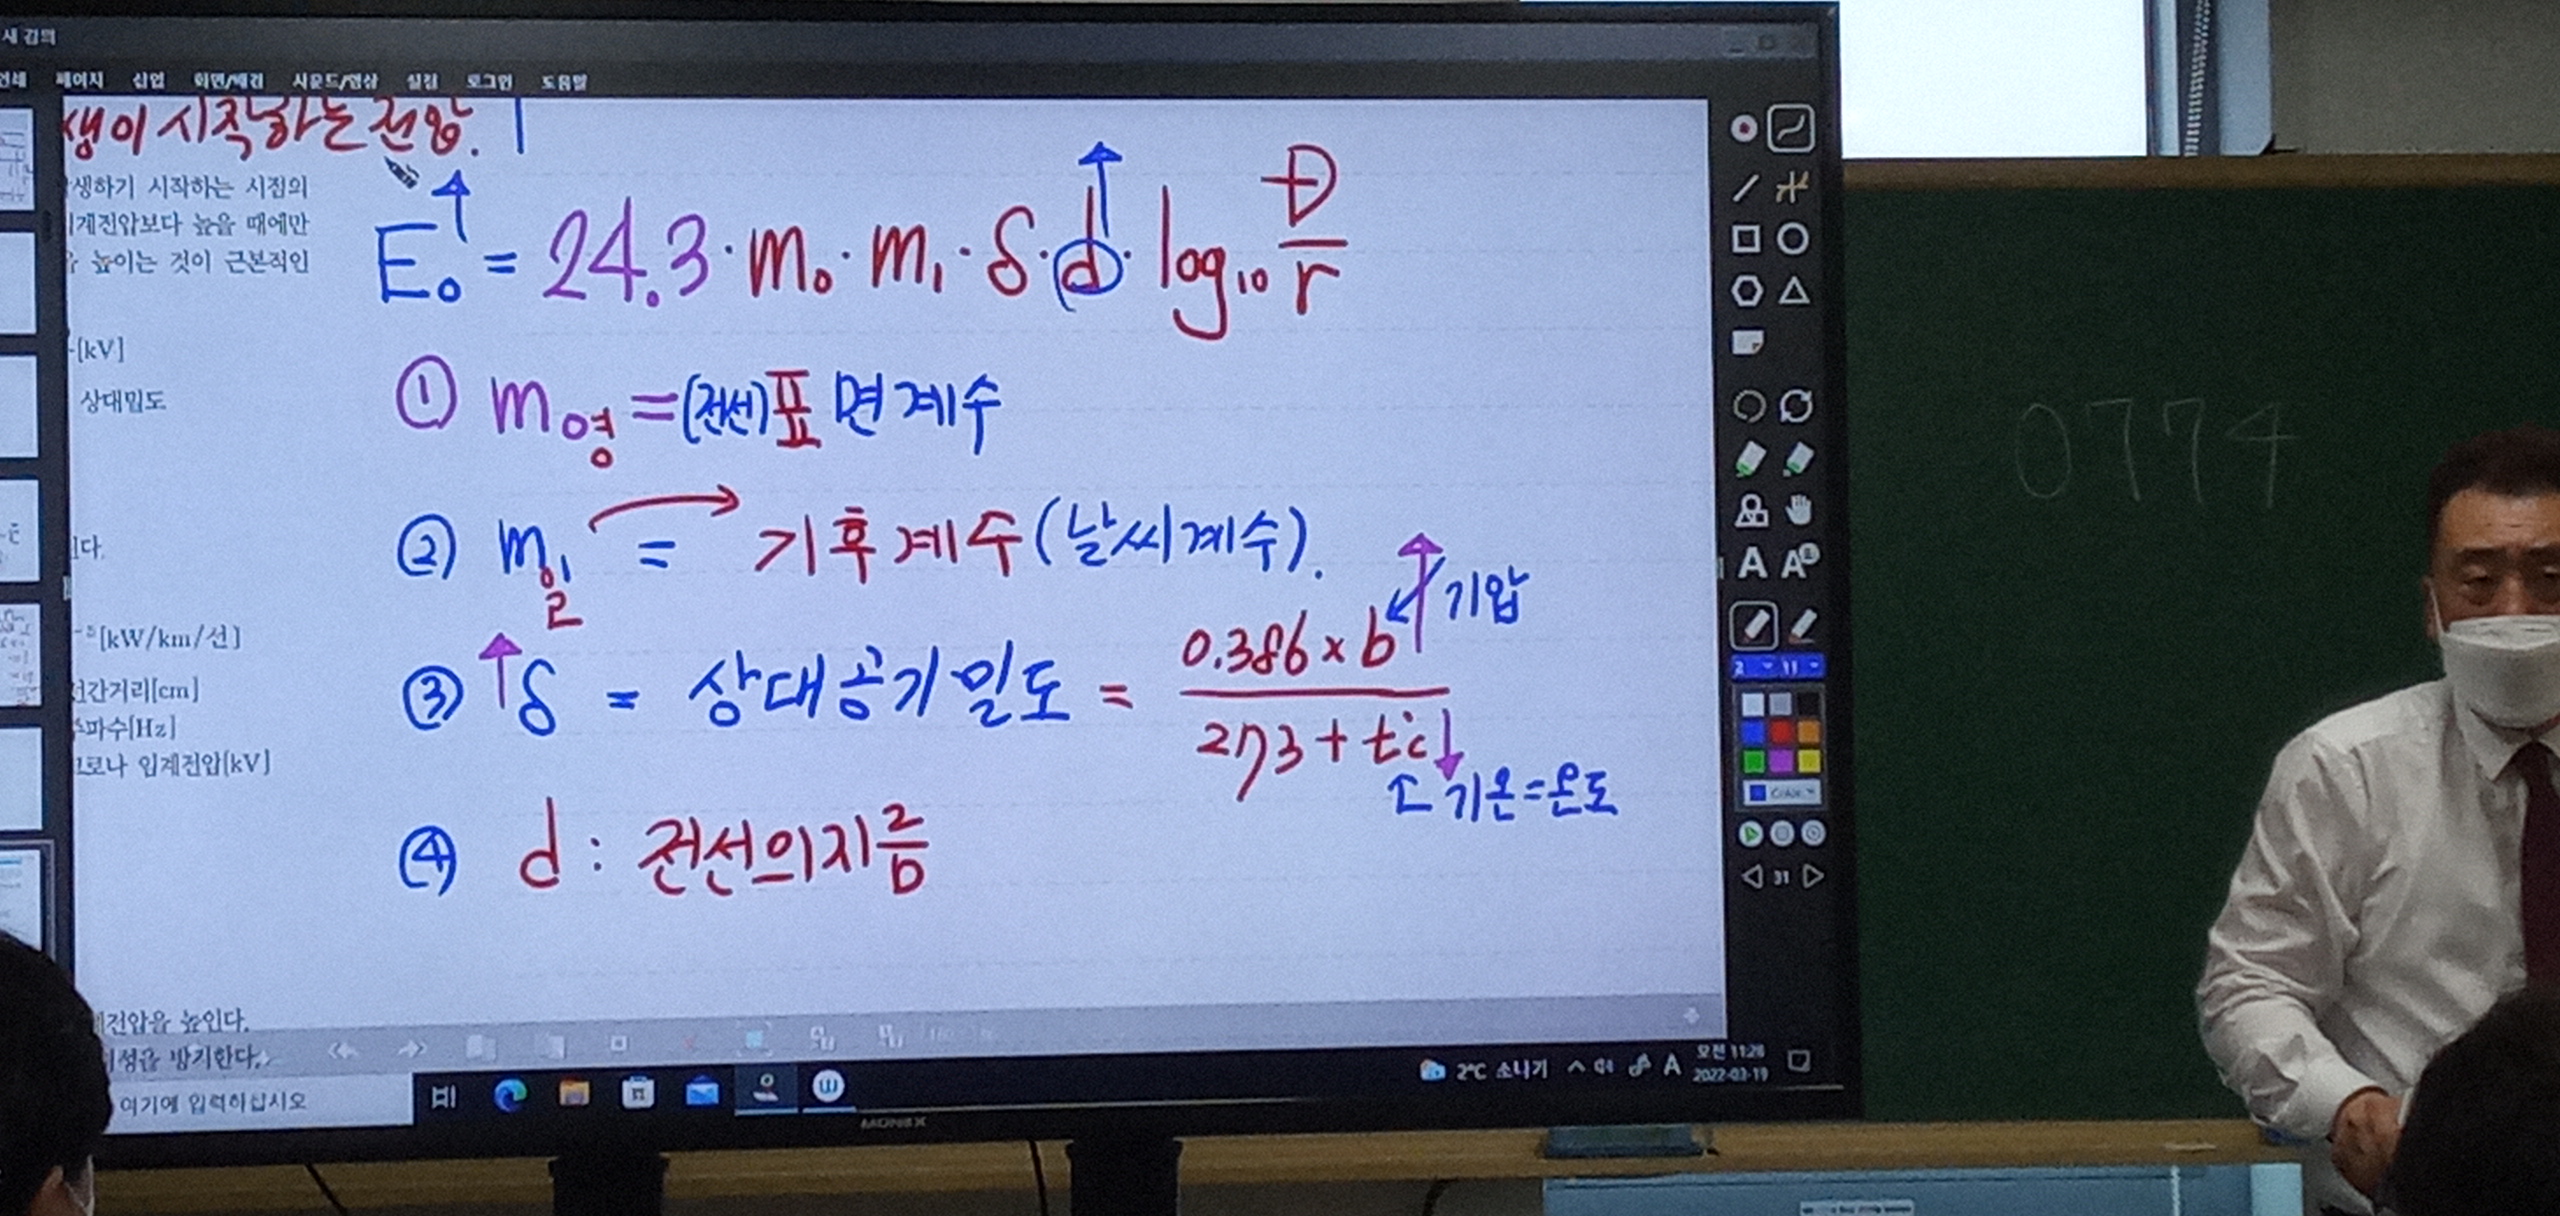 새 강의
페이지 삽입 화면/배경 사운드/영상 설정 로그인 도움말
생이 시작하는 전압.
생하기 시작하는 시점의
계전압보다 높을 때에만
높이는 것이 근본적인
E₀ = 24.3·m₀·m₁·δ·d·log₁₀ D/r
[kV]
① m₀영 = (전선)표면계수
상대밀도
② m₁일 = 기후계수(날씨계수).
다.
기압
③ δ = 상대공기밀도 = 0.386×b / 273+t℃
[kW/km/선]
선간거리[cm]
주파수[Hz]
코로나 임계전압[kV]
기온=온도
④ d : 전선의지름
계전압을 높인다.
성을 방기한다.
여기에 입력하십시오
2℃ 소나기 A 오전 11:28
2022-03-19
31
0774